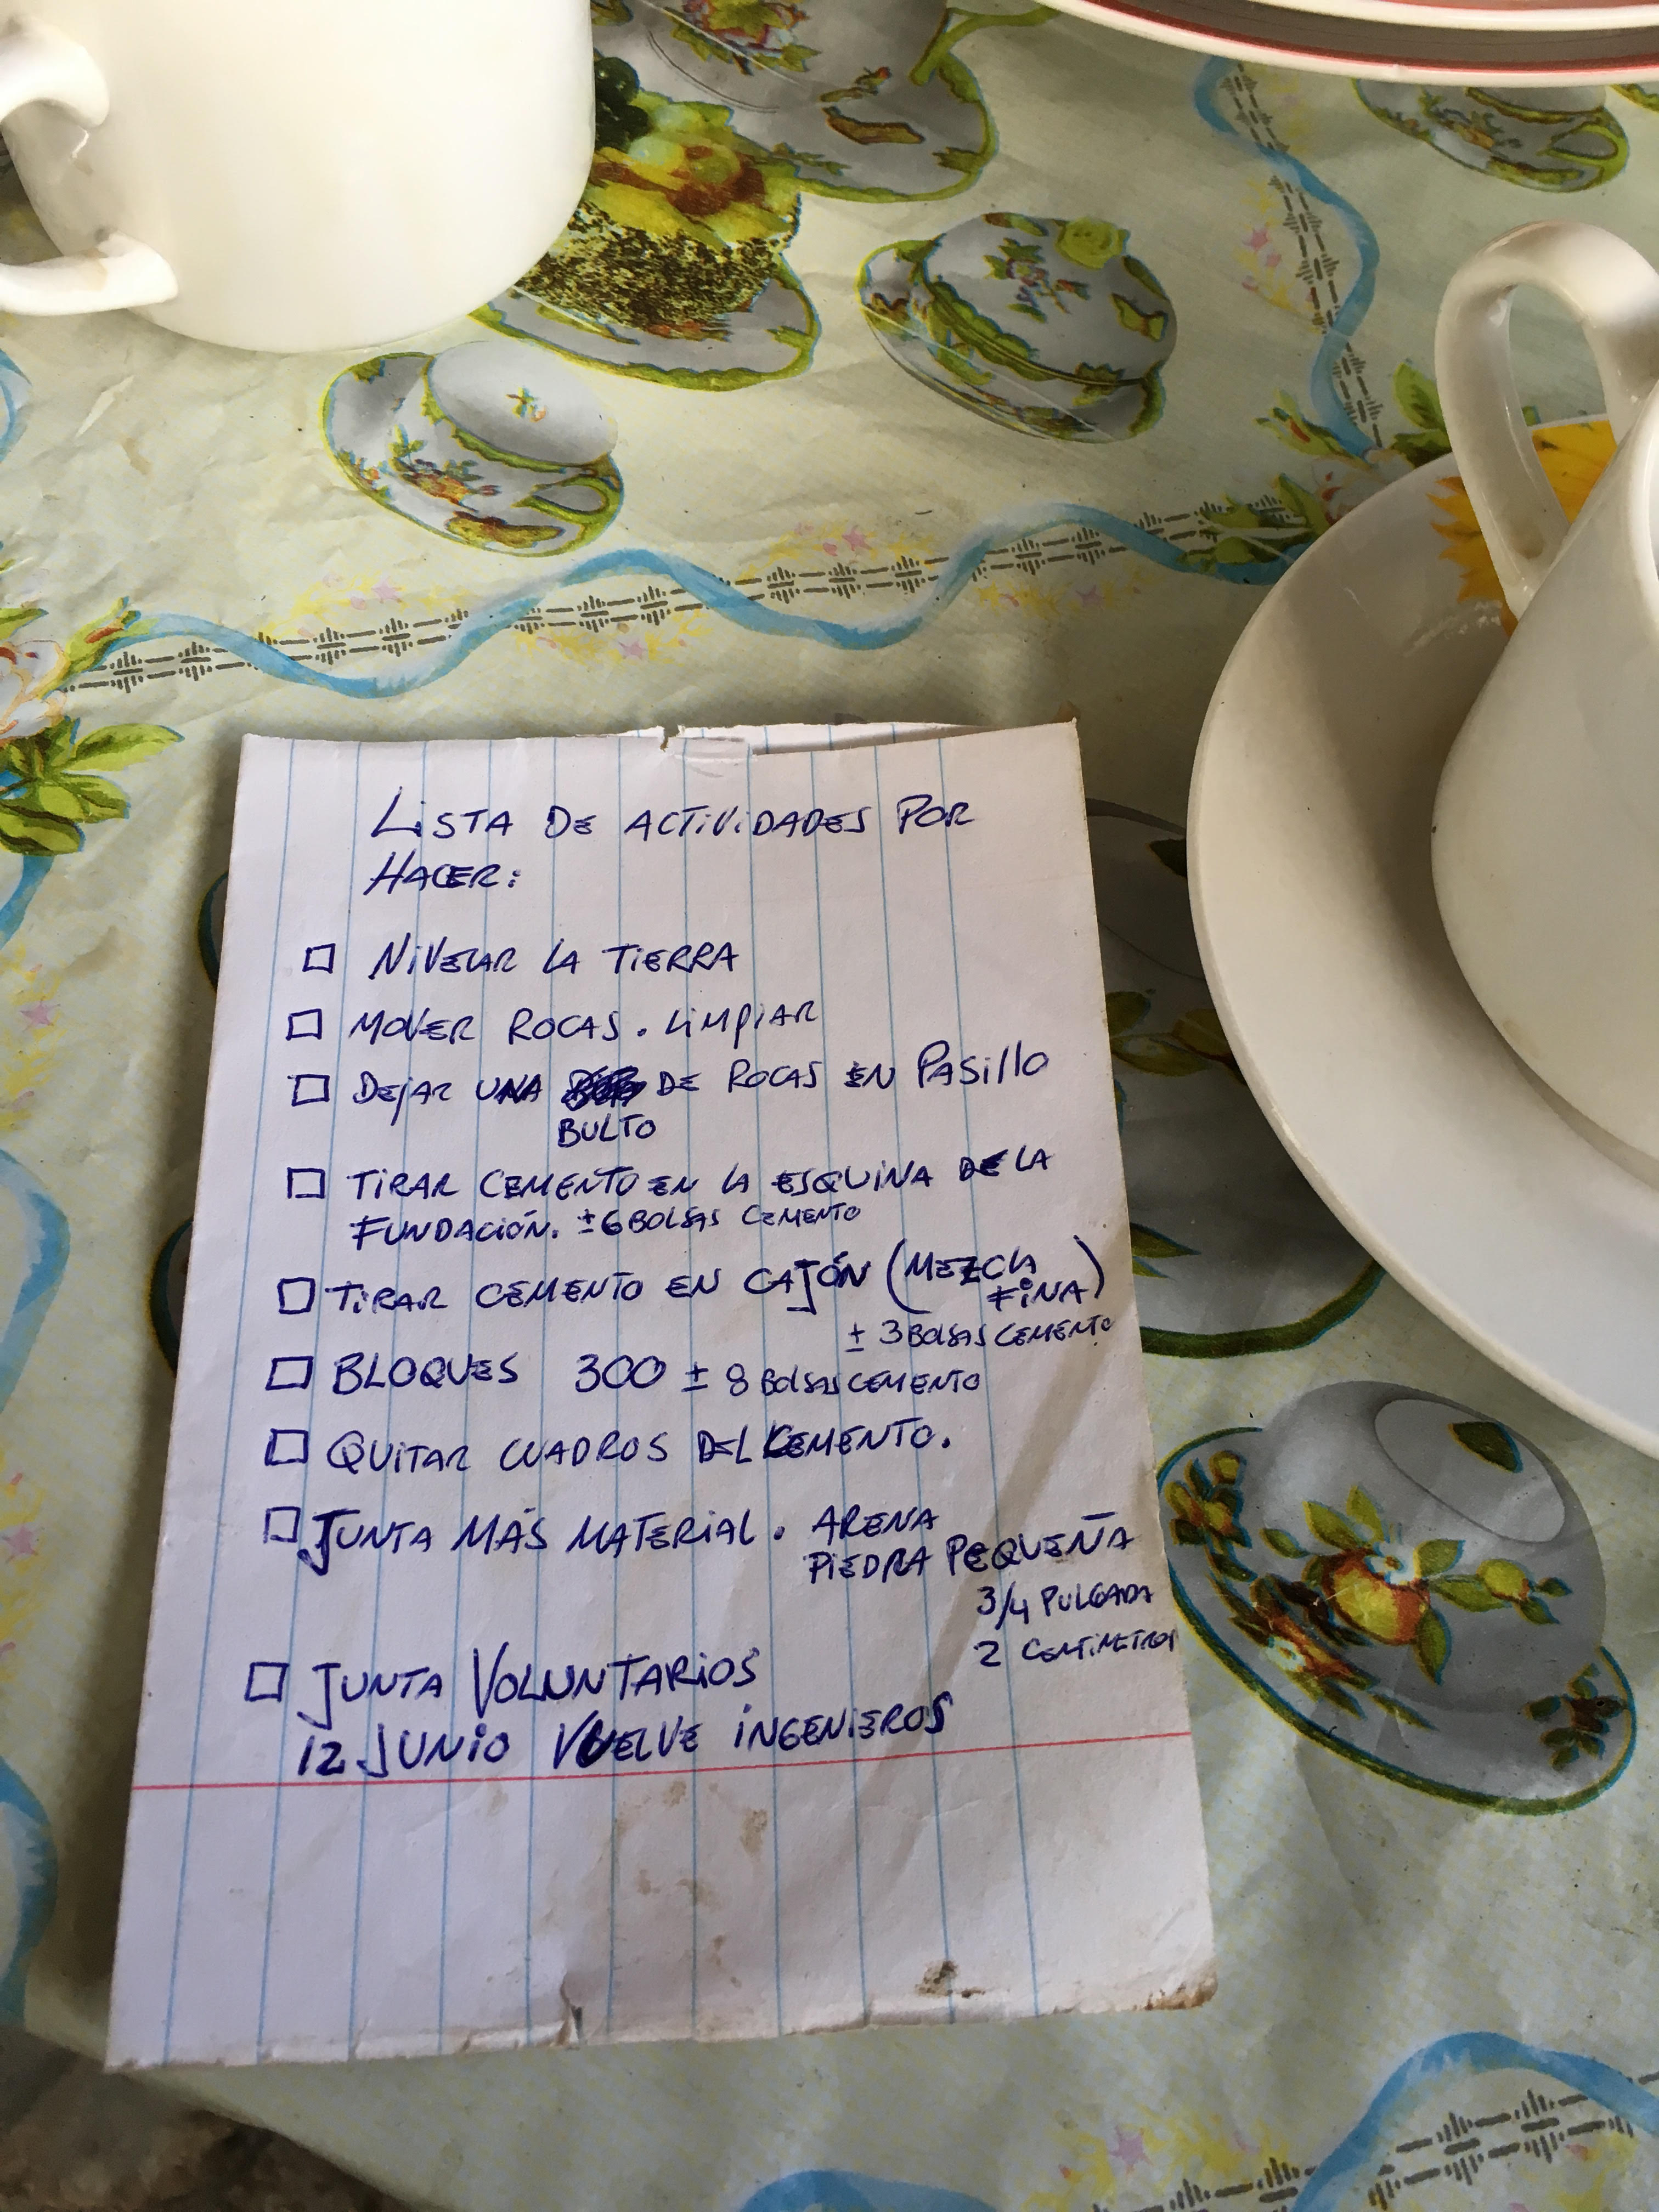 LISTA DE ACTIVIDADES POR
HACER:
□ NIVELAR LA TIERRA
□ MOVER ROCAS. LIMPIAR
□ DEJAR UNA DE ROCAS EN PASILLO
BULTO
□ TIRAR CEMENTO EN LA ESQUINA DE LA
FUNDACIÓN. ±6 BOLSAS CEMENTO
□ TIRAR CEMENTO EN CAJÓN (MEZCLA
FINA)
± 3 BOLSAS CEMENTO
□ BLOQUES 300 ± 8 BOLSAS CEMENTO
□ QUITAR CUADROS DEL CEMENTO.
□ JUNTA MÁS MATERIAL. ARENA
PIEDRA PEQUEÑA
3/4 PULGADA
2 CENTIMETROS
□ JUNTA VOLUNTARIOS
12 JUNIO VUELVE INGENIEROS